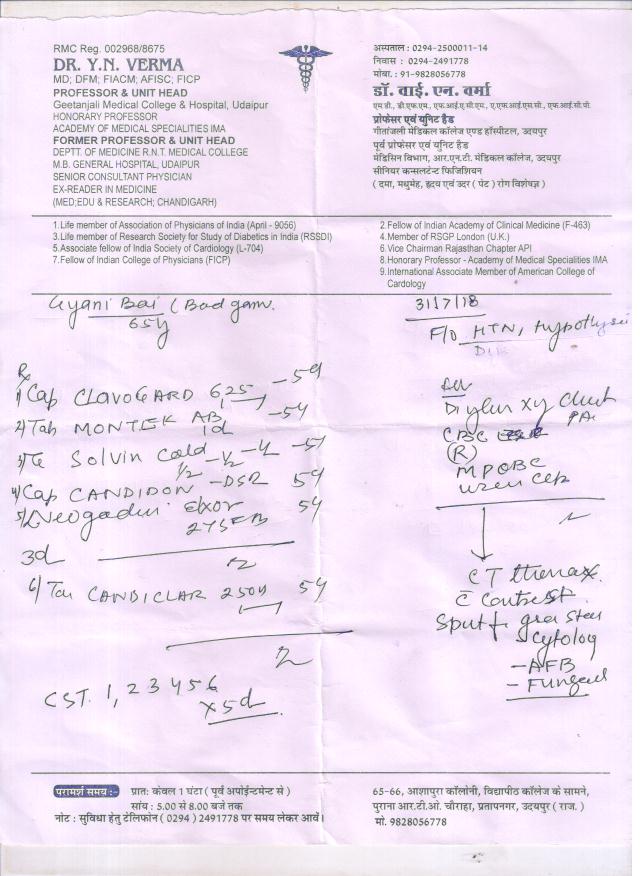 RMC Reg. 002968/8675
DR. Y.N. VERMA
MD; DFM; FIACM; AFISC; FICP
PROFESSOR & UNIT HEAD
Geetanjali Medical College & Hospital, Udaipur
HONORARY PROFESSOR
ACADEMY OF MEDICAL SPECIALITIES IMA
FORMER PROFESSOR & UNIT HEAD
DEPTT. OF MEDICINE R.N.T. MEDICAL COLLEGE
M.B. GENERAL HOSPITAL, UDAIPUR
SENIOR CONSULTANT PHYSICIAN
EX-READER IN MEDICINE
(MED;EDU & RESEARCH; CHANDIGARH)
अस्पताल : 0294-2500011-14
निवास : 0294-2491778
मोबा. : 91-9828056778
डॉ. वाई. एन. वर्मा
एम डी., डी.एफ.एम., एफ.आई.ए.सी.एम., ए.एफ.आई.एस.सी., एफ.आई.सी.पी.
प्रोफेसर एवं यूनिट हैड
गीतांजली मेडिकल कॉलेज एण्ड हॉस्पीटल, उदयपुर
पूर्व प्रोफेसर एवं यूनिट हैड
मेडिसिन विभाग, आर.एन.टी. मेडिकल कॉलेज, उदयपुर
सीनियर कन्सलटेन्ट फिजिशियन
( दमा, मधुमेह, हृदय एवं उदर ( पेट ) रोग विशेषज्ञ )
1.Life member of Association of Physicians of India (April - 9056)
3.Life member of Research Society for Study of Diabetics in India (RSSDI)
5.Associate fellow of India Society of Cardiology (L-704)
7.Fellow of Indian College of Physicians (FICP)
2.Fellow of Indian Academy of Clinical Medicine (F-463)
4.Member of RSGP London (U.K.)
6.Vice Chairman Rajasthan Chapter API
8.Honorary Professor - Academy of Medical Specialities IMA
9.International Associate Member of American College of
Cardiology
Gyani Bai
65y
31/7/18
F/o HTN,
Rx
1) Cap CLAVOGARD 625
2) Tab MONTEK AB
1d
Solvin Cold
4) Cap CANDIDON -DSR
5)
3d
6) CANDICLAR 250
CST. 1, 2 3 4 5 6
x5d
CBC
(R)
CT thorax
c Contrast
Cytolog
- AFB
- Fungal
परामर्श समय :-
प्रातः केवल 1 घंटा ( पूर्व अपोईन्टमेन्ट से )
सांय : 5.00 से 8.00 बजे तक
नोट : सुविधा हेतु टेलिफोन ( 0294 ) 2491778 पर समय लेकर आवें।
65-66, आशापुरा कॉलोनी, विद्यापीठ कॉलेज के सामने,
पुराना आर.टी.ओ. चौराहा, प्रतापनगर, उदयपुर ( राज. )
मो. 9828056778